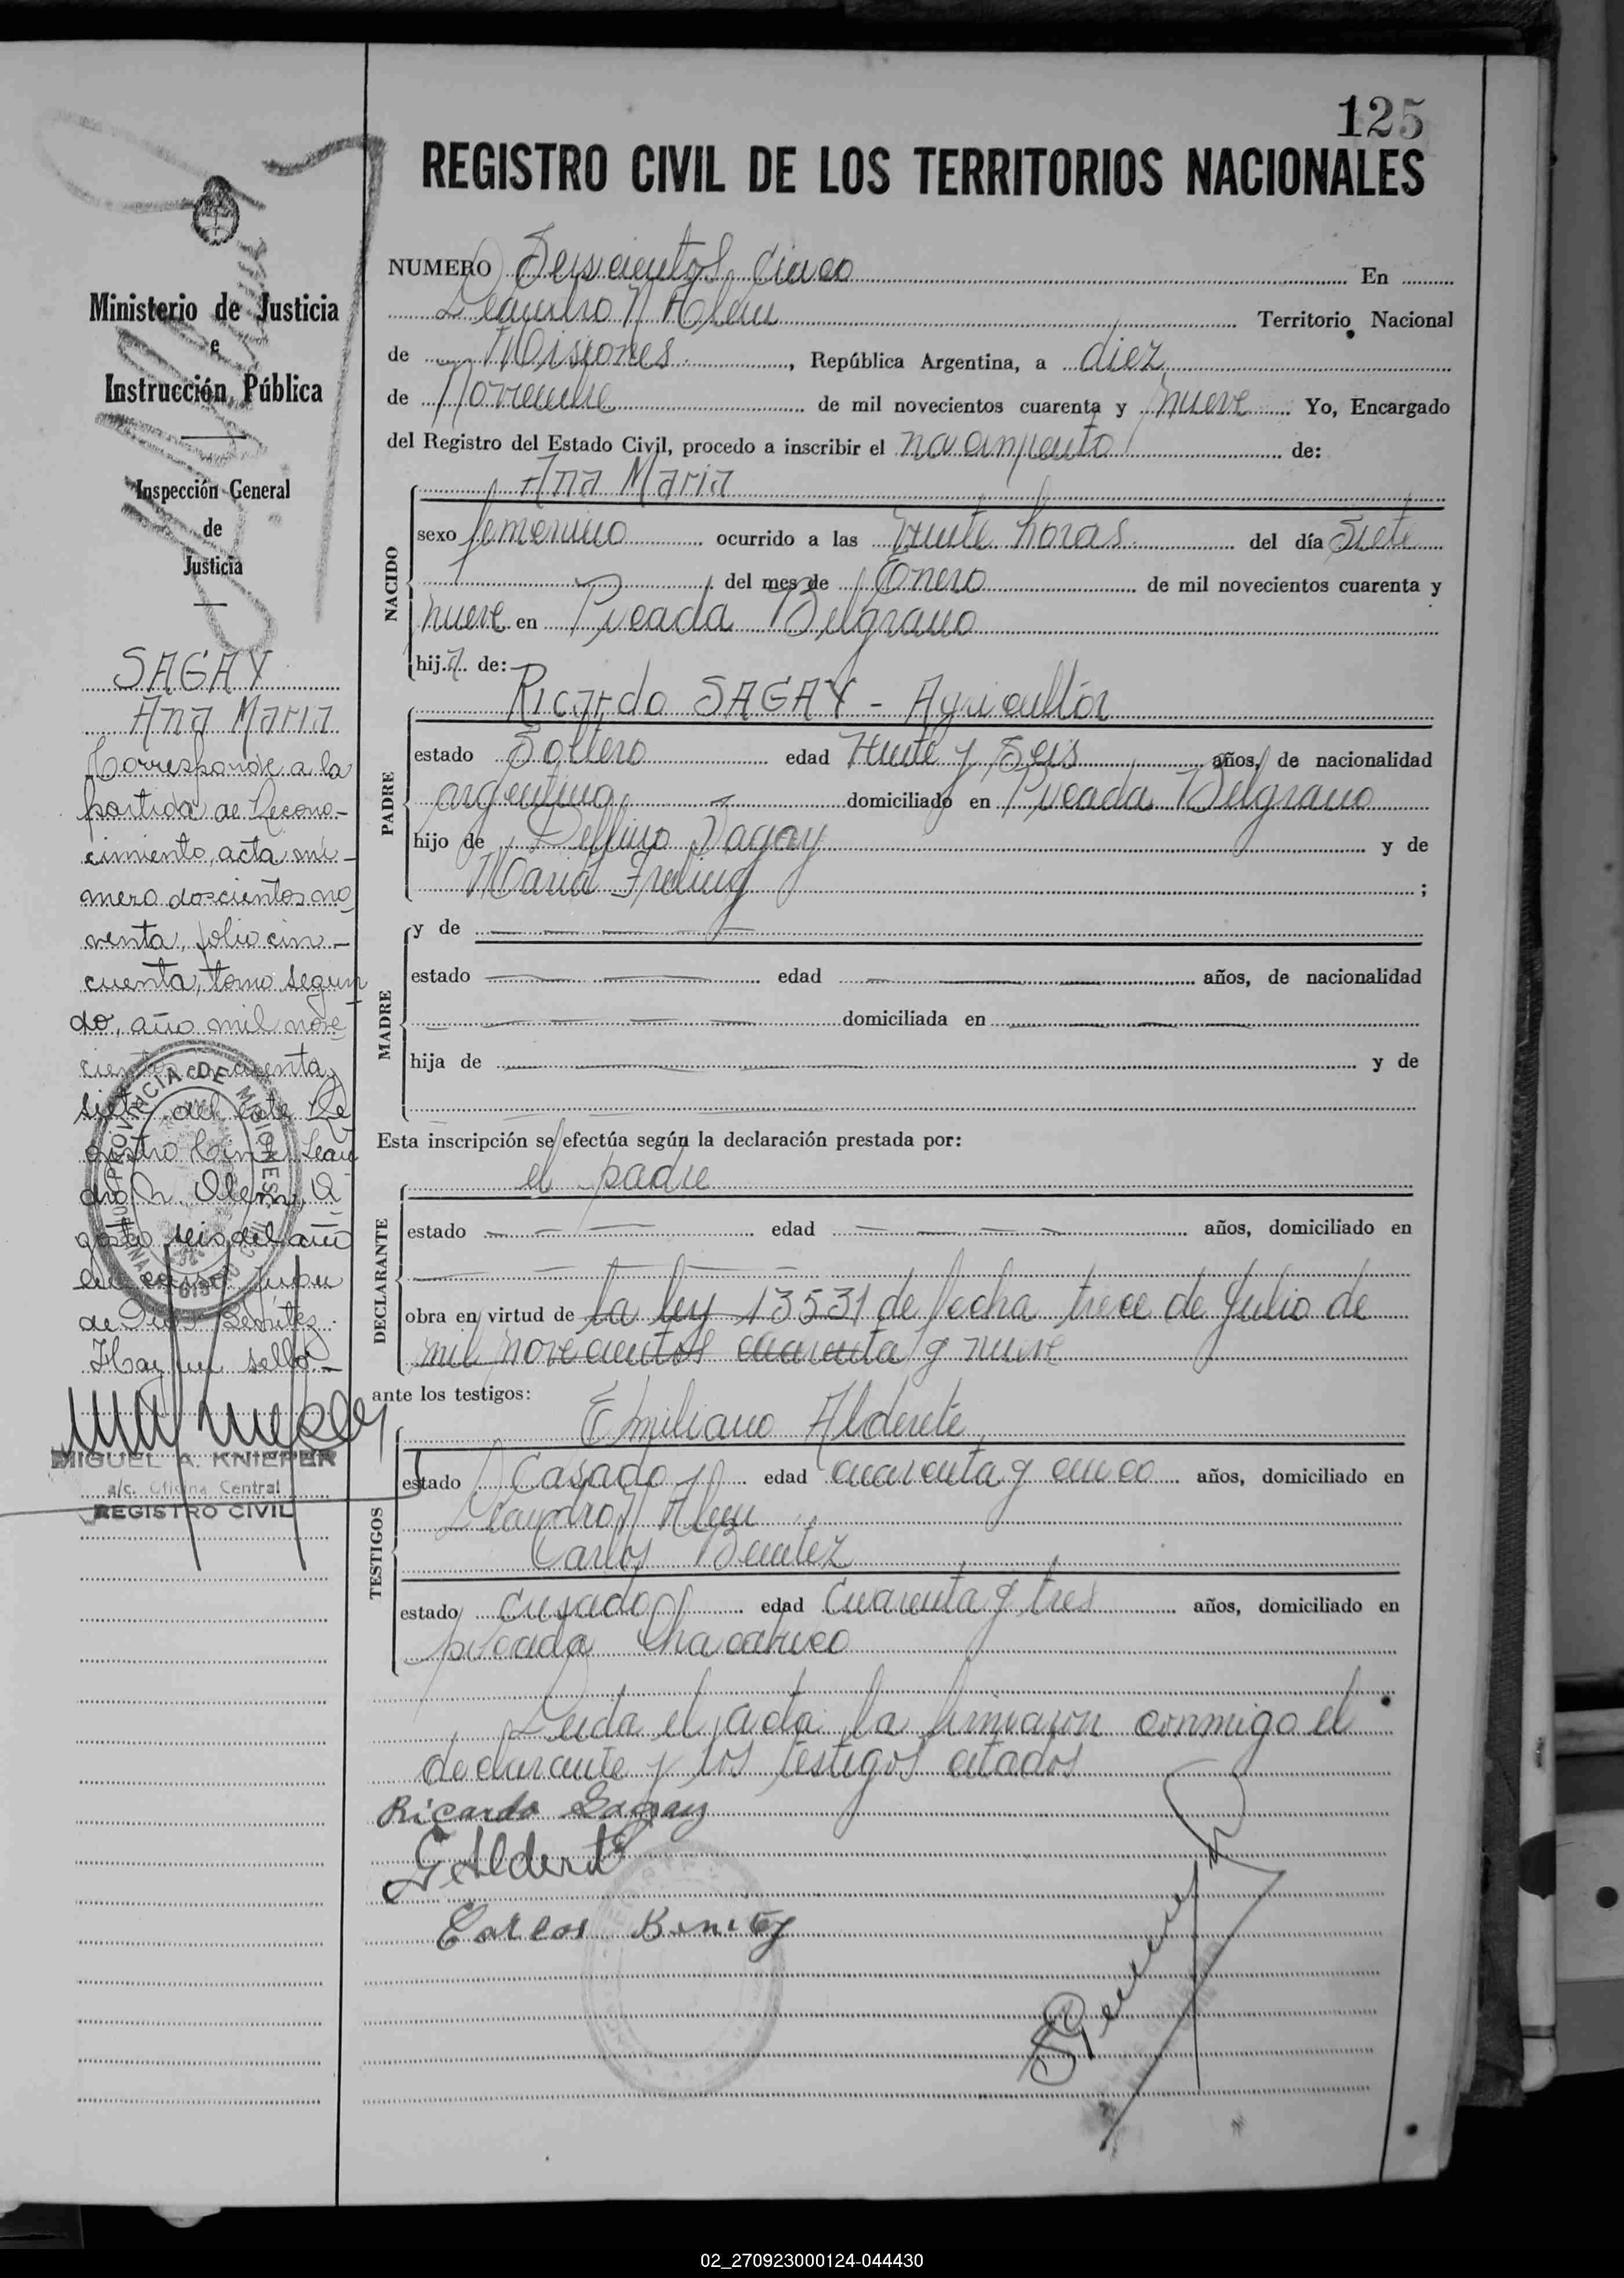 125
REGISTRO CIVIL DE LOS TERRITORIOS NACIONALES
Ministerio de Justicia
e
Instrucción Pública
Inspección General
de
Justicia
SAGAY
Ana Maria
Corresponde a la
partida de Recono-
cimiento, acta nú-
mero doscientos no
venta, folio cin-
cuenta, tomo segun
do, año mil nove
cientos cincuenta
siete del este Re
gistro Civil Lean
dro N. Alem, A
gosto seis del año
en curso
de Dios Benítez.
Hay un sello.-
MIGUEL A. KNIEPER
a/c. Oficina Central
REGISTRO CIVIL
PROVINCIA DE MISIONES
NUMERO Seiscientos cinco En
Leandro N Alem Territorio Nacional
de Misiones, República Argentina, a diez
de Noviembre de mil novecientos cuarenta y nueve Yo, Encargado
del Registro del Estado Civil, procedo a inscribir el nacimiento de:
NACIDO
Ana Maria
sexo femenino ocurrido a las veinte horas. del día siete
del mes de Enero de mil novecientos cuarenta y
nueve en Picada Belgrano
hija de:
PADRE
Ricardo SAGAY - Agricultor
estado Soltero edad veinte y seis años, de nacionalidad
argentina domiciliado en Picada Belgrano
hijo de Delfino Sagay y de
Maria Freling ;
MADRE
y de
estado edad años, de nacionalidad
domiciliada en
hija de y de
Esta inscripción se efectúa según la declaración prestada por:
DECLARANTE
el padre
estado edad años, domiciliado en
obra en virtud de la ley 13531 de fecha trece de Julio de
mil novecientos cuarenta y nueve
ante los testigos:
TESTIGOS
Emiliano Alderete
estado Casado edad cuarenta y cinco años, domiciliado en
Leandro N Alem
Carlos Benitez
estado casado edad cuarenta y tres años, domiciliado en
picada Chacabuco
Leida el acta la firmaron conmigo el
declarante y los testigos citados
Ricardo Sagay
E Alderete
Carlos Benitez
02_270923000124-044430